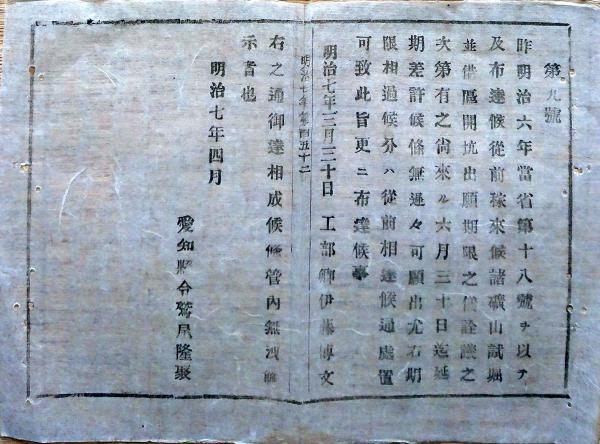 第九號
昨明治六年當省第十八號ヲ以テ
及布達候從前稼來候諸礦山試堀
並借區開坑出願期限之儀詮議之
次第有之尚來ル六月三十日迄延
期差許候條無遅々可願出尤右期
限相過候分ハ從前相達候通處置
可致此旨更ニ布達候事
明治七年三月三十日 工部卿伊藤博文
明治七年第百五十二
右之通御達相成候條管内無洩觸
示者也
明治七年四月
愛知縣令鷲尾隆聚